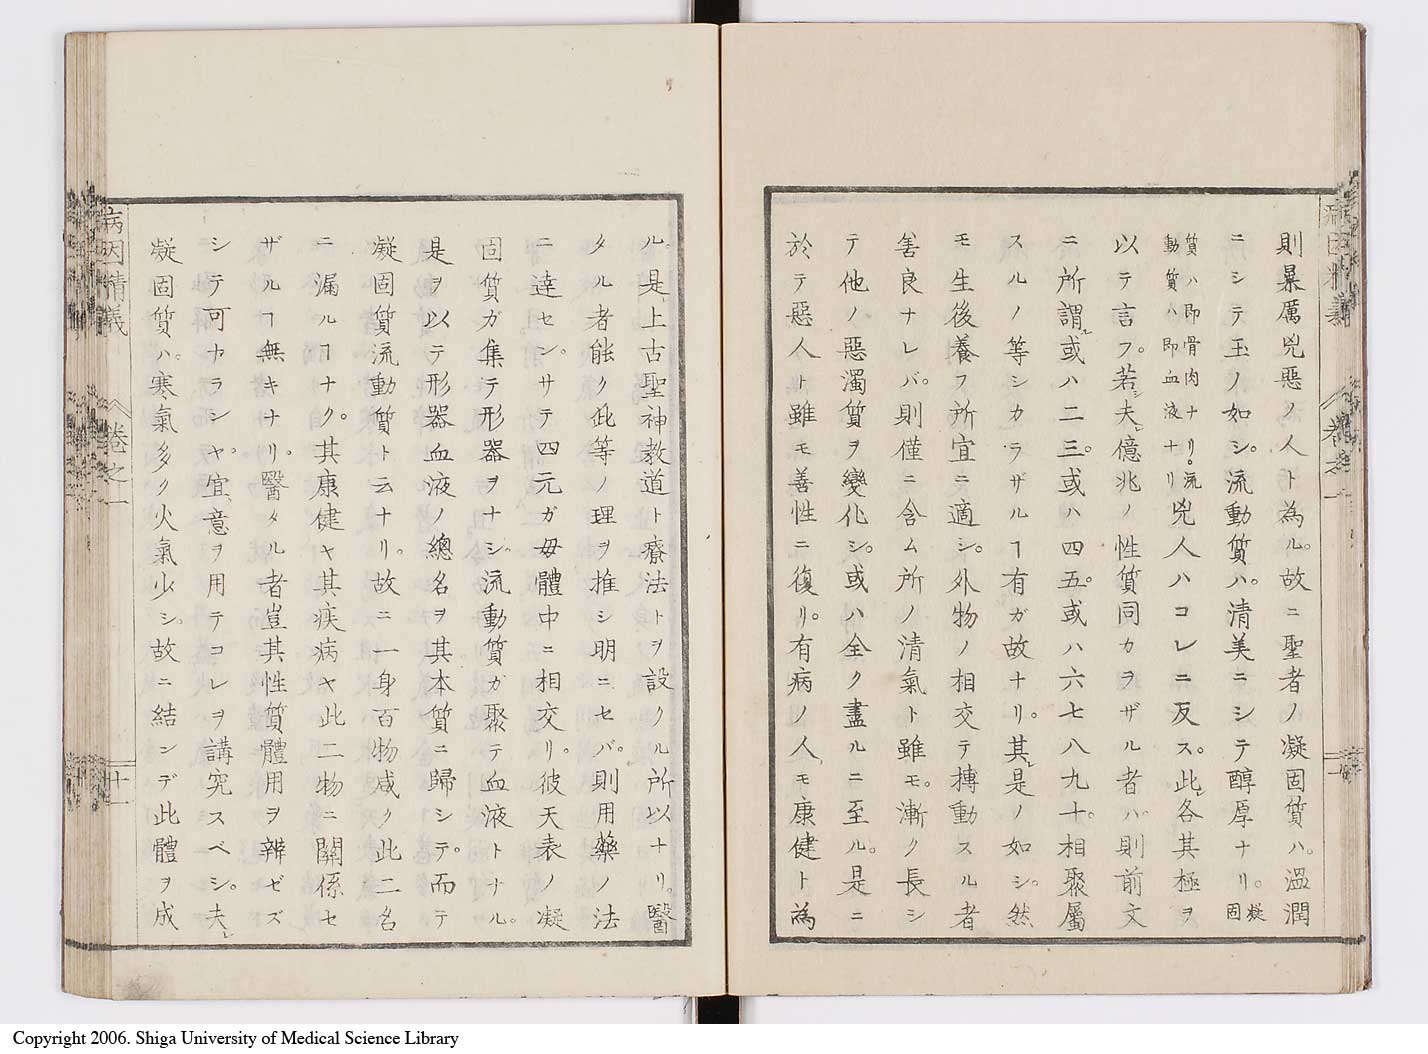 則暴厲兇惡ノ人ト為ル。故ニ聖者ノ凝固質ハ。溫潤
ニシテ玉ノ如シ。流動質ハ。清美ニシテ醇厚ナリ。凝固
質ハ即骨肉ナリ。流動質ハ即血液ナリ兇人ハコレニ反ス。此レ各其極ヲ
以テ言フ。若シ夫レ億兆ノ性質同カラザル者ハ。則前文
ニ所謂ル或ハ二三。或ハ四五。或ハ六七八九十。相聚屬
スルノ等シカラザルヿ有ガ故ナリ。其レ是ノ如シ。然
モ生後養フ所宜ニ適シ。外物ノ相交テ摶動スル者
善良ナレバ。則僅ニ含ム所ノ清氣ト雖モ。漸ク長シ
テ他ノ惡濁質ヲ變化シ。或ハ全ク盡ルニ至ル。是ニ
於テ惡人ト雖モ善性ニ復リ。有病ノ人モ康健ト為
病因精義 卷之一
ル。是レ上古聖神教道ト療法トヲ設クル所以ナリ。醫
タル者能ク此等ノ理ヲ推シ明ニセバ。則用藥ノ法
ニ達セン。サテ四元ガ母體中ニ相交リ。彼天表ノ凝
固質ガ集テ形器ヲナシ。流動質ガ聚テ血液トナル。
是ヲ以テ形器血液ノ總名ヲ其本質ニ歸シテ。而テ
凝固質流動質ト云ナリ。故ニ一身百物咸ク此二名
ニ漏ルヿナク。其康健ヤ其疾病ヤ此二物ニ關係セ
ザルヿ無キナリ。醫タル者豈其性質體用ヲ辨ゼズ
シテ可ナランヤ。宜ク意ヲ用テコレヲ講究スベシ。夫レ
凝固質ハ。寒氣多ク火氣少シ。故ニ結ンデ此體ヲ成
病因精義 卷之一 十一